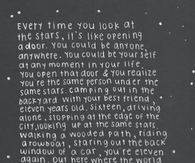 Every time you look at
the stars, it's like opening
a door. You could be anyone,
anywhere. You could be yourself
at any moment in your life.
You open that door & you realize
you're the same person under the
same stars. Camping out in the
backyard with your best friend,
eleven years old. Sixteen, driving
alone, stopping at the edge of the
city, looking up at the same stars.
Walking a wooded path, riding
a rowboat, staring out the back
window of a car, you're eleven
again. Out here where the world